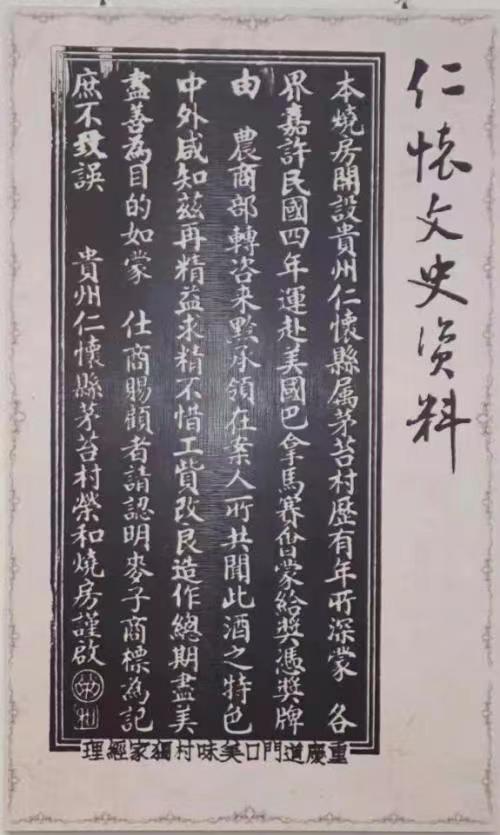 仁怀文史资料
本燒房開設貴州仁懷縣属茅苔村歷有年所深蒙 各
界嘉許民國四年運赴美國巴拿馬賽會蒙給獎憑獎牌
由 農商部轉咨来黔承領在案人所共聞此酒之特色
中外咸知茲再精益求精不惜工貲改良造作總期盡美
盡善為目的如蒙 仕商賜顧者請認明麥子商標為記
庶不致誤 貴州仁懷縣茅苔村榮和燒房謹啟
重慶道門口美味村獨家經理